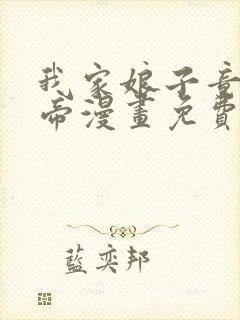 我家娘子竟
帝漫畫免費
藍奕邦